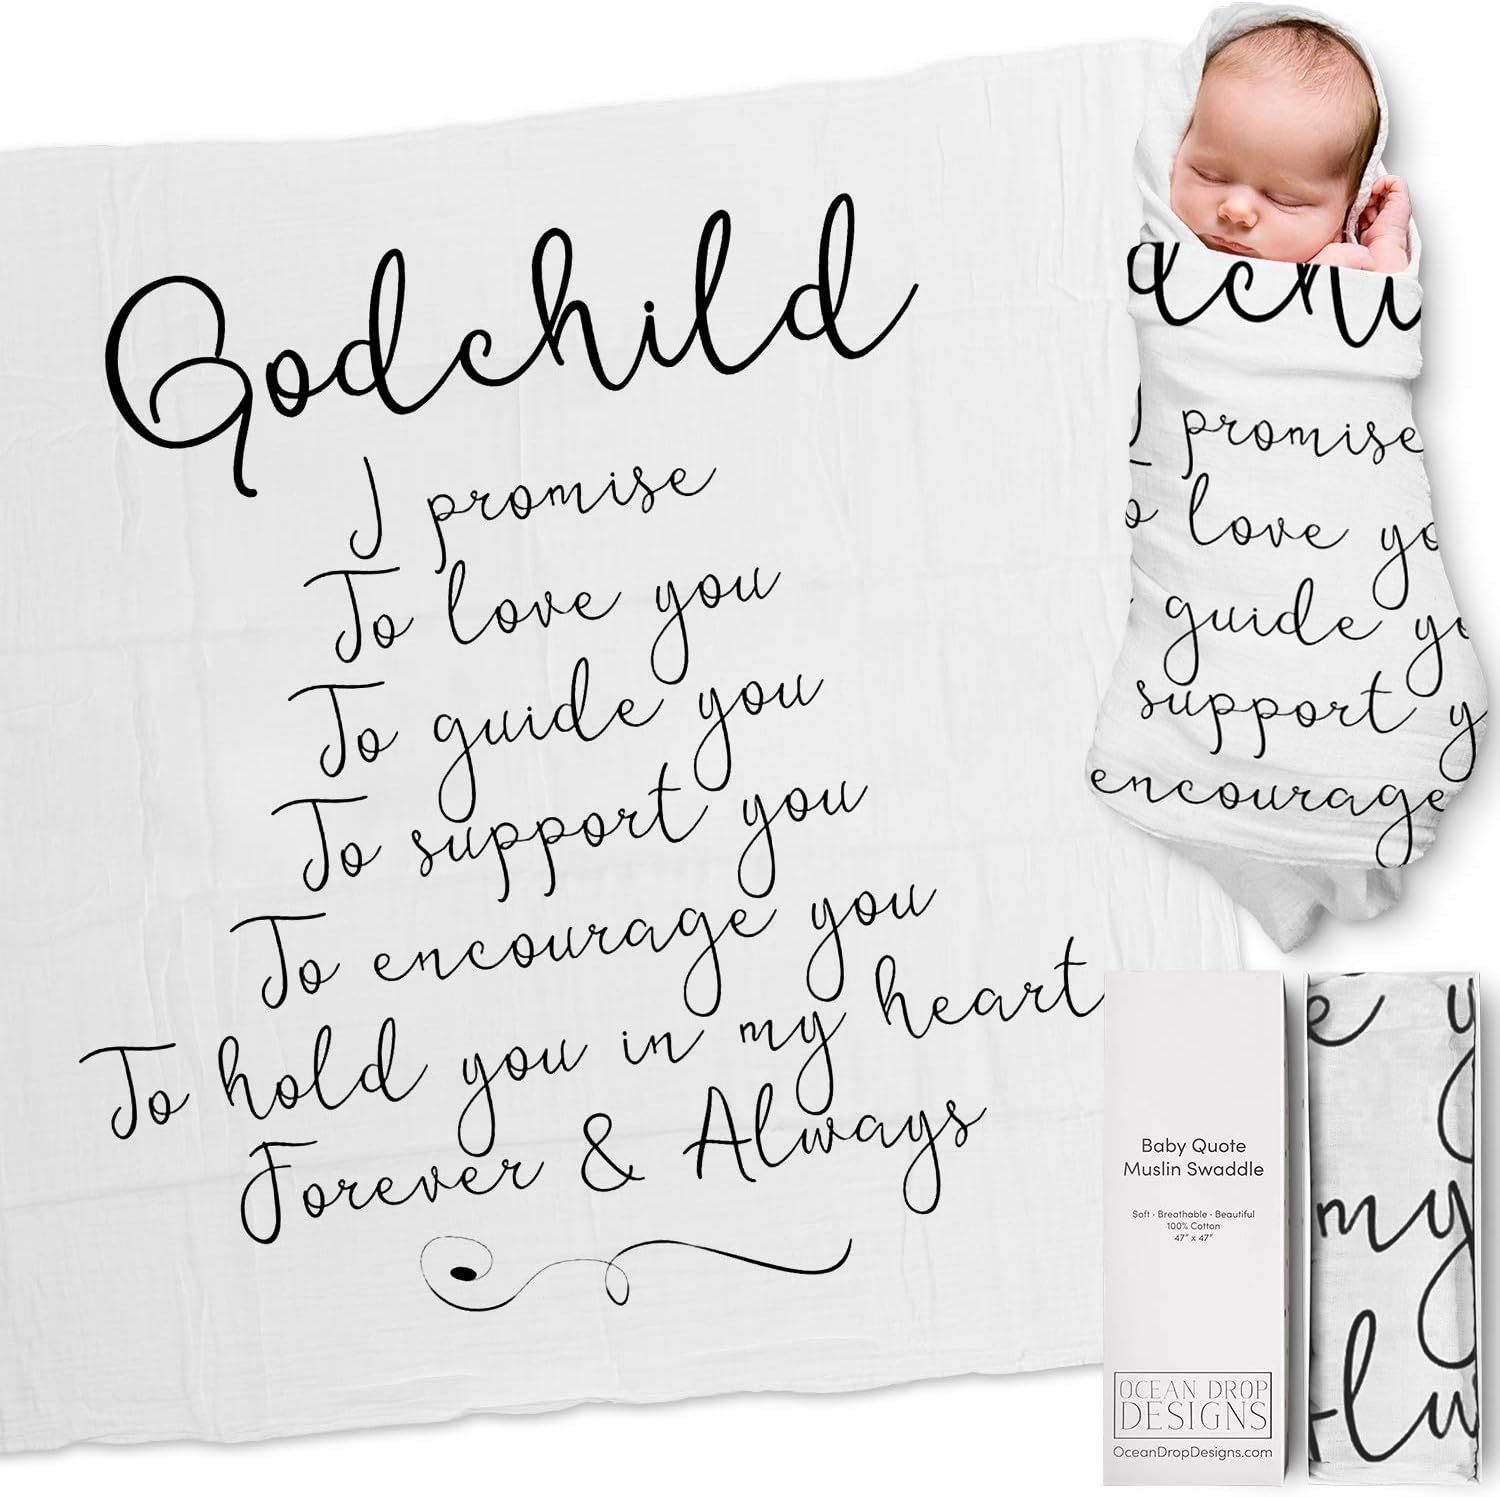 Godchild
I promise
To love you
To guide you
To support you
To encourage you
To hold you in my heart
Forever & Always
dchi
I promise
o love yo
guide yo
support y
encourage
Baby Quote
Muslin Swaddle
Soft · Breathable · Beautiful
100% Cotton
47" x 47"
OCEAN DROP
DESIGNS
OceanDropDesigns.com
e y
my
lw